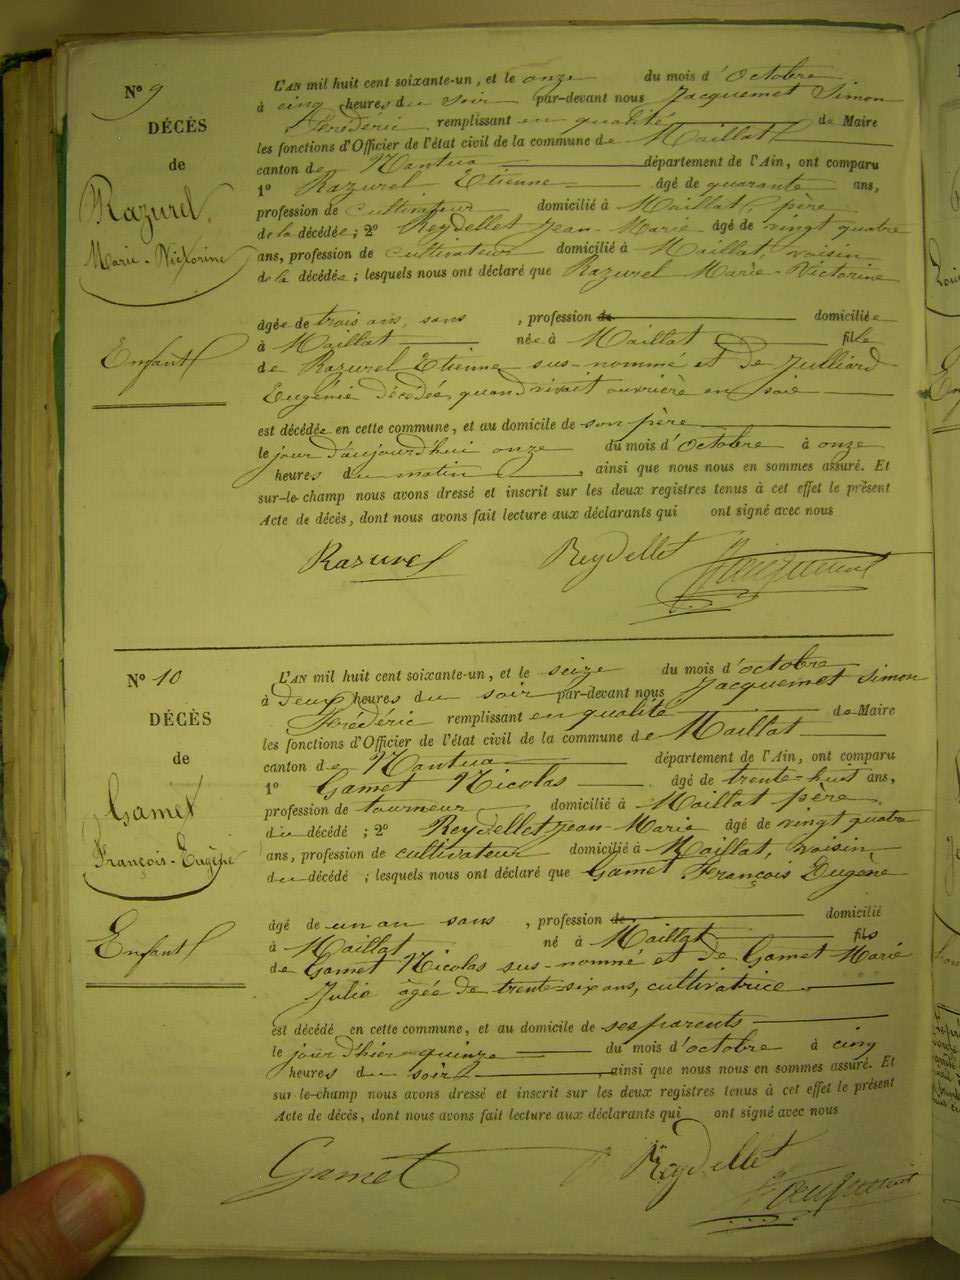 N° 9
DÉCÈS
de
Razurel
Marie-Victorine
Enfant
L'AN mil huit cent soixante-un, et le onze du mois d'Octobre
à cinq heures du soir par-devant nous Jacquemet Simon
Frédéric remplissant en qualité de Maire
les fonctions d'Officier de l'état civil de la commune de Maillat
canton de Nantua département de l'Ain, ont comparu
1° Razurel Etienne âgé de quarante ans,
profession de cultivateur domicilié à Maillat, père
de la décédée ; 2° Reydellet Jean-Marie âgé de vingt quatre
ans, profession de cultivateur domicilié à Maillat, voisin
de la décédée ; lesquels nous ont déclaré que Razurel Marie-Victorine
âgée de trois ans, sans , profession de domiciliée
à Maillat née à Maillat fille
de Razurel Etienne sus-nommé et de Julliard
Eugénie décédés, quand vivait ouvrière en soie
est décédée en cette commune, et au domicile de son père
le jour d'aujourd'hui onze du mois d'Octobre à onze
heures du matin , ainsi que nous nous en sommes assuré. Et
sur-le-champ nous avons dressé et inscrit sur les deux registres tenus à cet effet le présent
Acte de décès, dont nous avons fait lecture aux déclarants qui ont signé avec nous
Razurel Reydellet Jacquemet
N° 10
DÉCÈS
de
Gamet
François-Eugène
Enfant
L'AN mil huit cent soixante-un, et le seize du mois d'octobre
à deux heures du soir par-devant nous Jacquemet Simon
Frédéric remplissant en qualité de Maire
les fonctions d'Officier de l'état civil de la commune de Maillat
canton de Nantua département de l'Ain, ont comparu
1° Gamet Nicolas âgé de trente-huit ans,
profession de tourneur domicilié à Maillat père
du décédé ; 2° Reydellet Jean-Marie âgé de vingt quatre
ans, profession de cultivateur domicilié à Maillat, voisin
du décédé ; lesquels nous ont déclaré que Gamet François Eugène
âgé de un an sans , profession de domicilié
à Maillat né à Maillat fils
de Gamet Nicolas sus-nommé et de Gamet Marie
Julie âgée de trente-six ans, cultivatrice
est décédé en cette commune, et au domicile de ses parents
le jour d'hier quinze du mois d'octobre à cinq
heures du soir , ainsi que nous nous en sommes assuré. Et
sur le-champ nous avons dressé et inscrit sur les deux registres tenus à cet effet le présent
Acte de décès, dont nous avons fait lecture aux déclarants qui ont signé avec nous
Gamet Reydellet Jacquemet